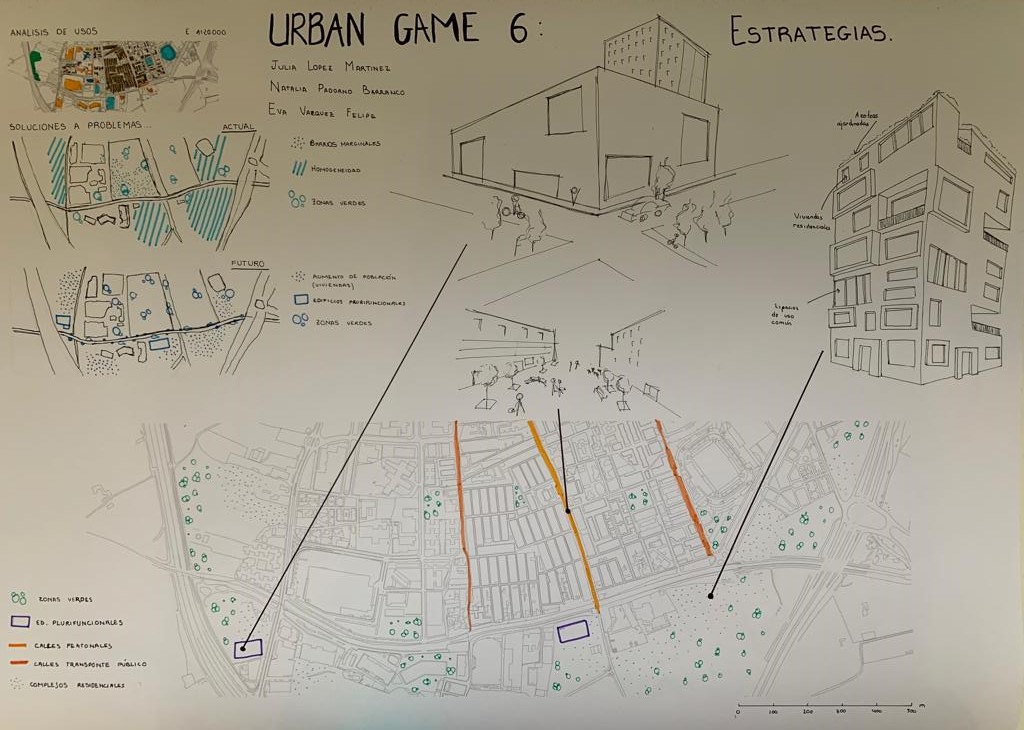 URBAN GAME 6:
ESTRATEGIAS.
JULIA LOPEZ MARTINEZ
NATALIA PADORNO BARRANCO
EVA VAZQUEZ FELIPE
ANALISIS DE USOS E 1:20.000
SOLUCIONES A PROBLEMAS... ACTUAL
BARRIOS MARGINALES
HOMOGENEIDAD
ZONAS VERDES
FUTURO
AUMENTO DE POBLACIÓN
(VIVIENDAS)
EDIFICIOS PLURIFUNCIONALES
ZONAS VERDES
Azoteas
ajardinadas
Viviendas
residenciales
Espacios
de uso
común
ZONAS VERDES
ED. PLURIFUNCIONALES
CALLES PEATONALES
CALLES TRANSPORTE PÚBLICO
COMPLEJOS RESIDENCIALES
0 100 200 300 400 500 m